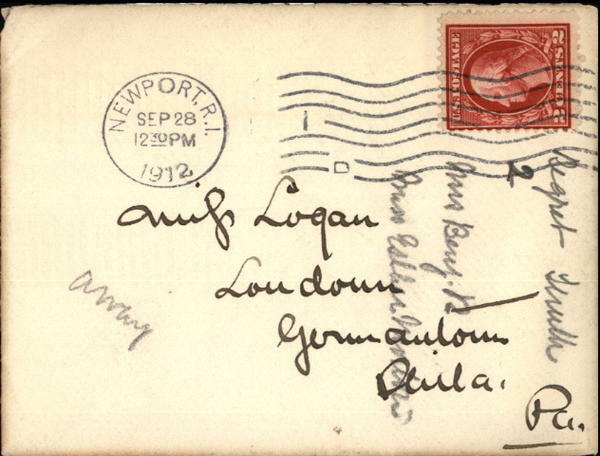 NEWPORT, R.I.
SEP 28
12 30 PM
1912
1
D
U.S. POSTAGE
2 CENTS 2
Miss Logan
Loudoun
Germantown
Phila.
Pa.
2
Regret
Mrs Benj. R.
Miss Esther